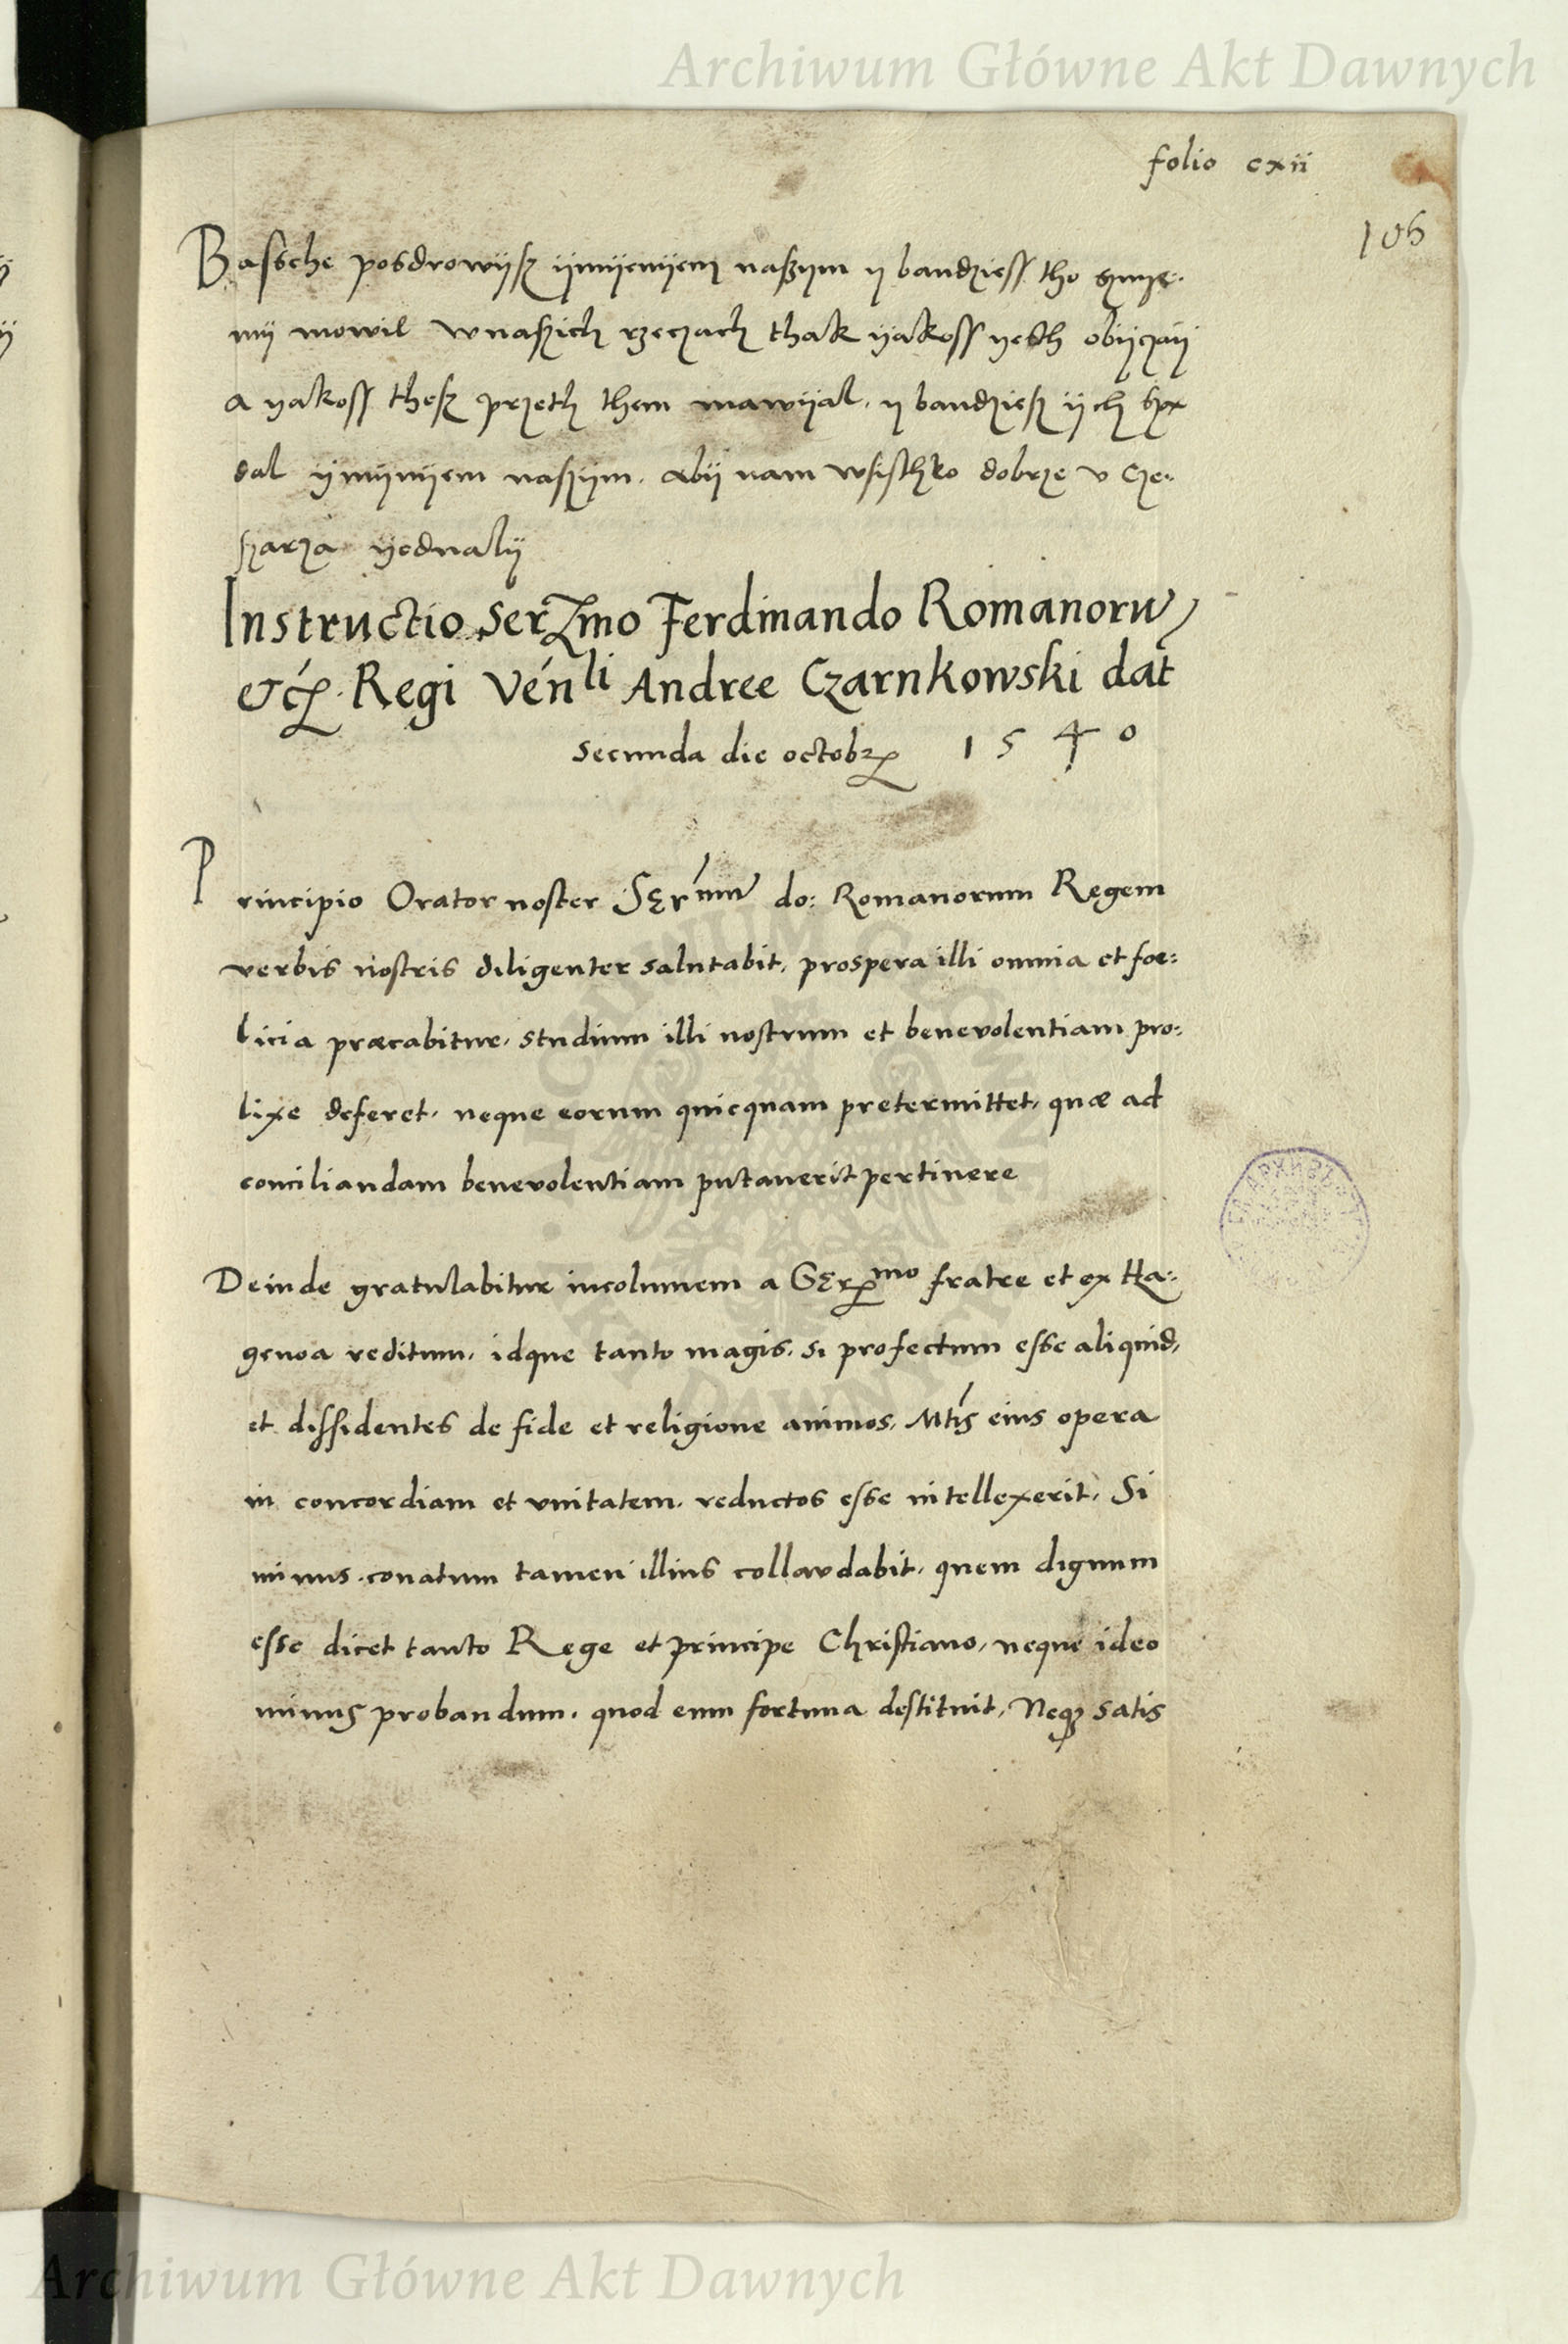 Archiwum Główne Akt Dawnych
folio cxii
106
Bassche posdrowijsz ijmijenijem naszijm ij bandziessz tho sznije-
mij mowil w naszich rzeczach thak ijakoss ijesth obijczaij
a ijakoss thesz przeth them mawijal. ij bandziesz ijch
dal ijmijnijem naszijm. abij nam wsistzko dobrze v Cze-
szarza ijednalij
Instructio Serᵐo Ferdinando Romanorum
etc. Regi Venˡⁱ Andree Czarnkowski dat
secunda die octobr 1540
Principio Orator noster Serᵐᵘᵐ do: Romanorum Regem
verbis nostris diligenter salutabit, prospera illi omnia et foe:
licia præcabitur, studium illi nostrum et benevolentiam pro:
lixe deferet, neque eorum quicquam pretermittet, quæ ad
conciliandam benevolentiam putaverit pertinere
Deinde gratulabitur incolumem a Serᵐᵒ fratre et ex Ha:
genoa reditum, idque tanto magis, si profectum esse aliquid,
et dissidentes de fide et religione animos, Mtis eius opera
in concordiam et vnitatem, reductos esse intellexerit, Si
minus, conatum tamen illius collaudabit, quem dignum
esse dicet tanto Rege et principe Christiano, neque ideo
minus probandum, quod eum fortuna destituit, Neqз satis
Archiwum Główne Akt Dawnych